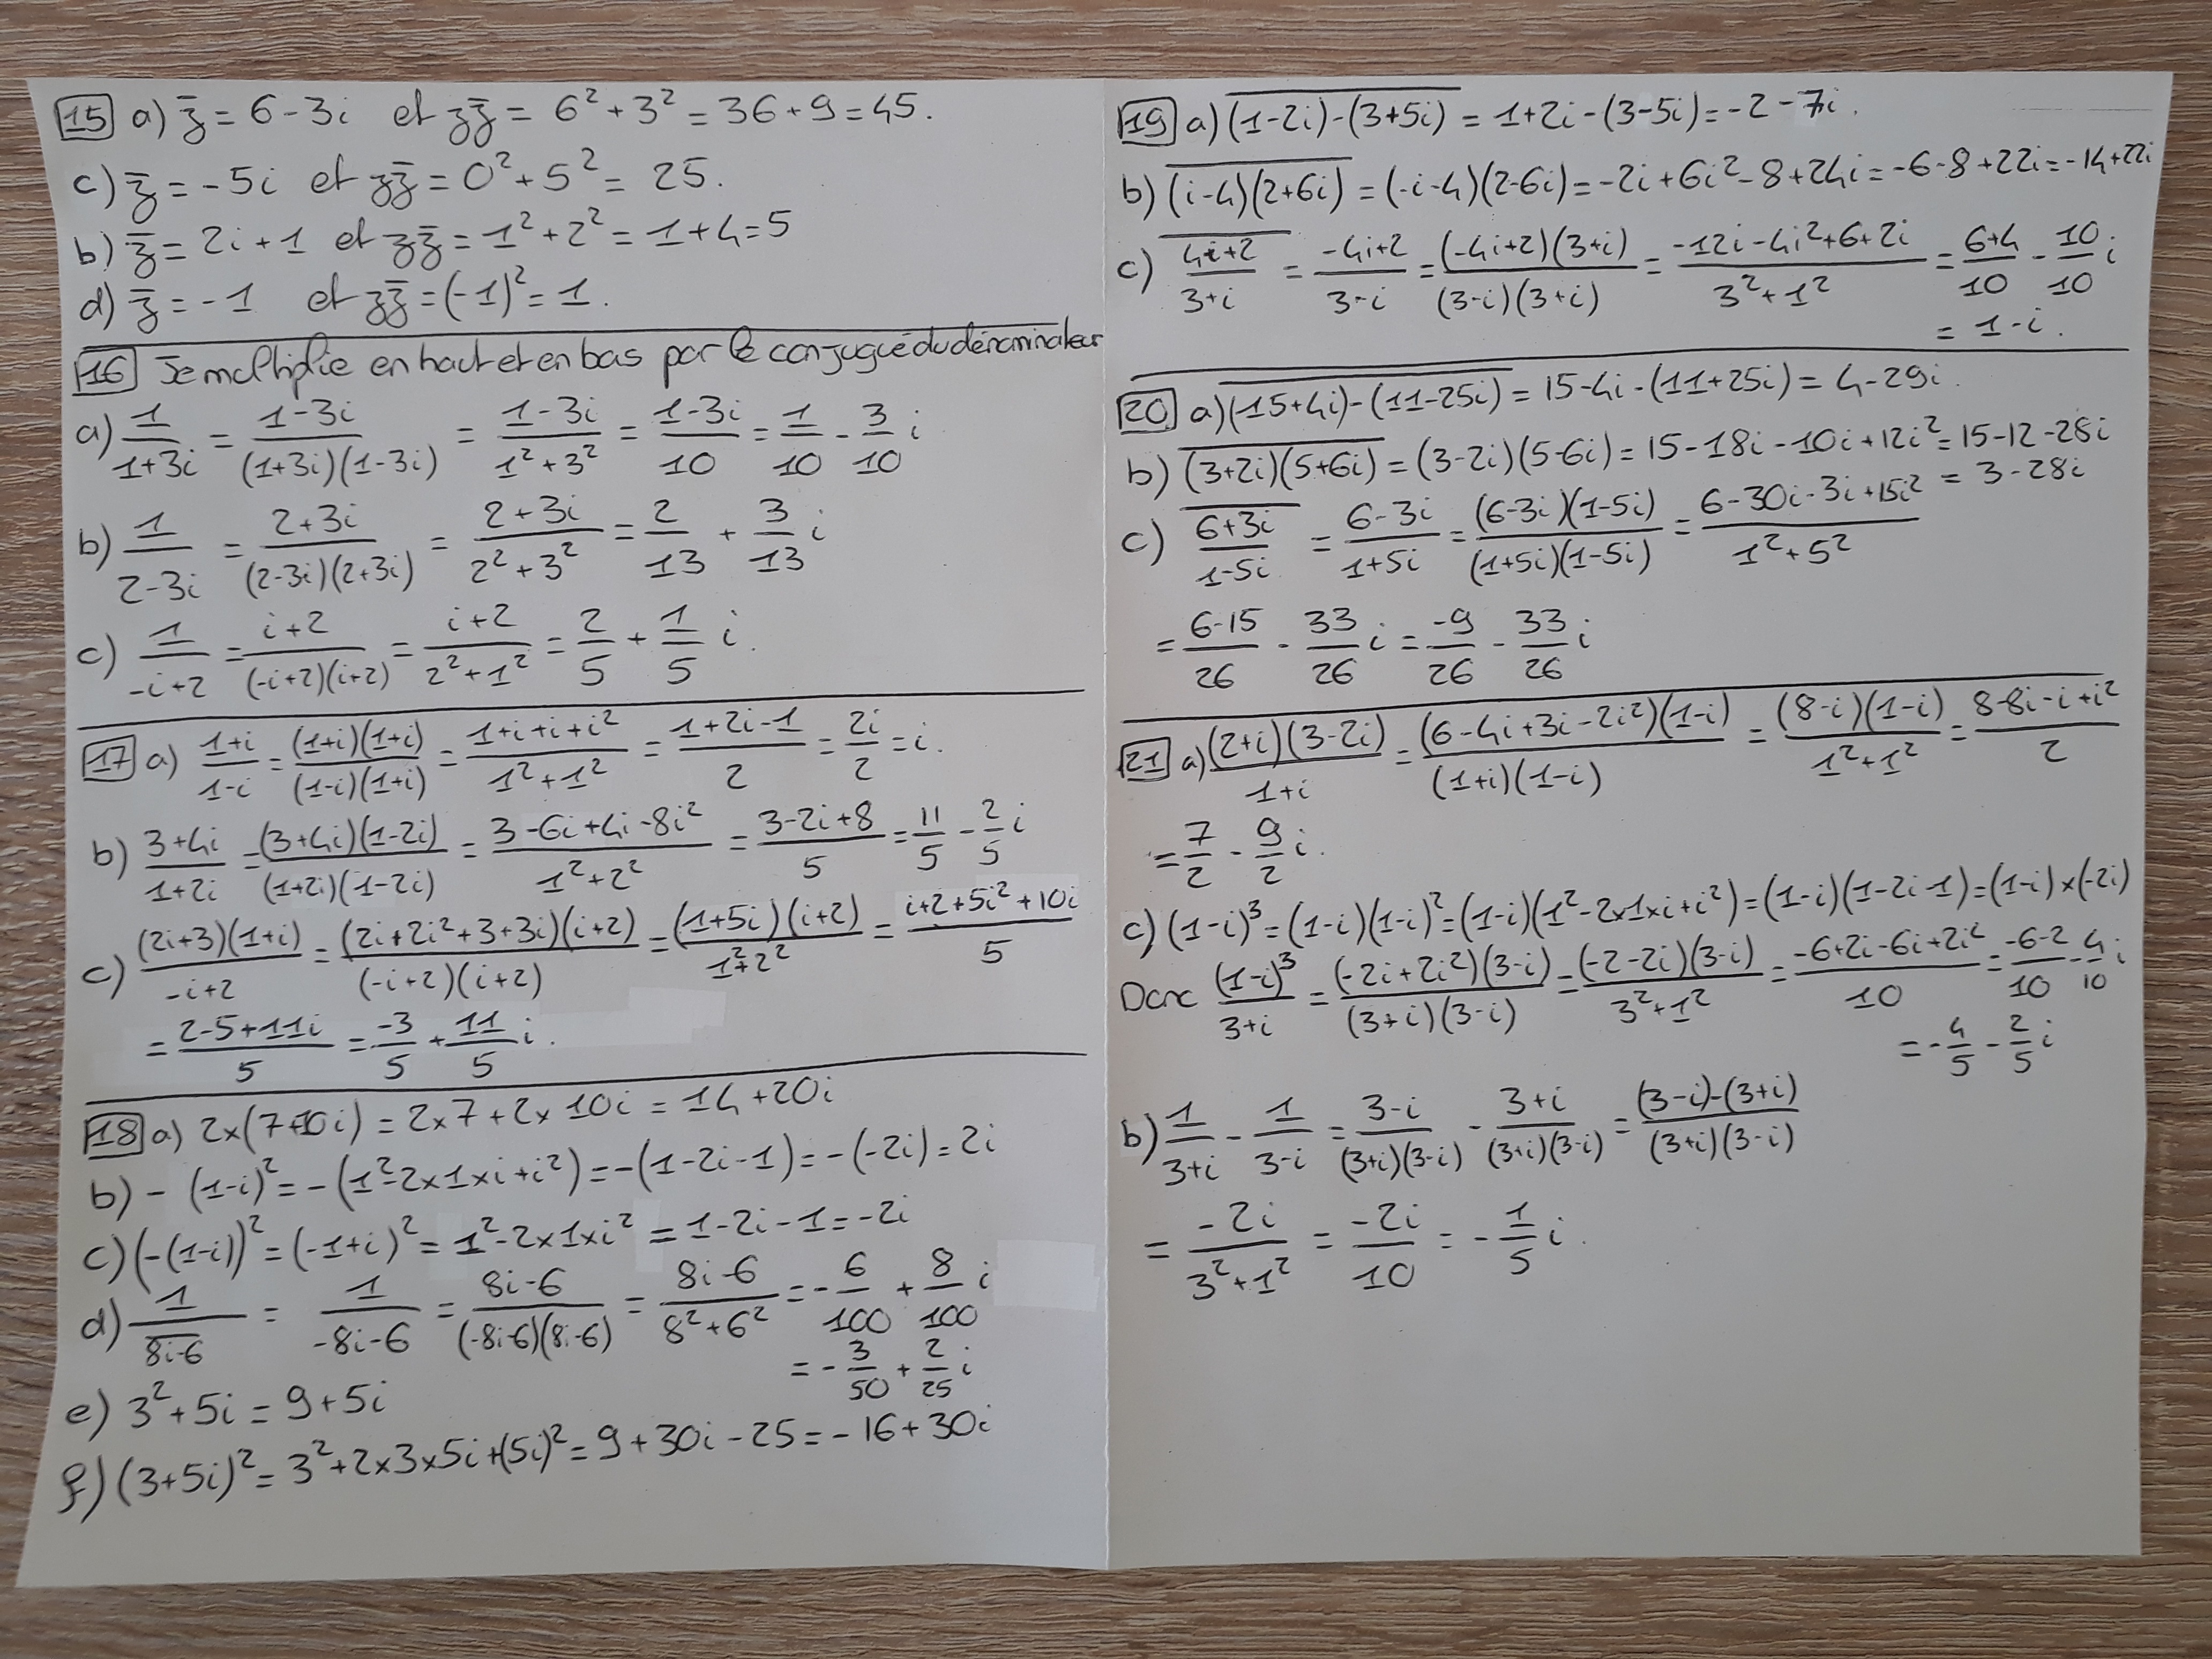 15 a) z̄ = 6-3i et zz̄ = 6²+3² = 36+9 = 45.
c) z̄ = -5i et zz̄ = 0²+5² = 25.
b) z̄ = 2i+1 et zz̄ = 1²+2² = 1+4 = 5
d) z̄ = -1 et zz̄ = (-1)² = 1.
16 Je multiplie en haut et en bas par le conjugué du dénominateur
a) 1/(1+3i) = (1-3i)/((1+3i)(1-3i)) = (1-3i)/(1²+3²) = (1-3i)/10 = 1/10 - 3/10 i
b) 1/(2-3i) = (2+3i)/((2-3i)(2+3i)) = (2+3i)/(2²+3²) = 2/13 + 3/13 i
c) 1/(-i+2) = (i+2)/((-i+2)(i+2)) = (i+2)/(2²+1²) = 2/5 + 1/5 i.
17 a) (1+i)/(1-i) = ((1+i)(1+i))/((1-i)(1+i)) = (1+i+i+i²)/(1²+1²) = (1+2i-1)/2 = 2i/2 = i.
b) (3+4i)/(1+2i) = ((3+4i)(1-2i))/((1+2i)(1-2i)) = (3-6i+4i-8i²)/(1²+2²) = (3-2i+8)/5 = 11/5 - 2/5 i
c) ((2i+3)(1+i))/(-i+2) = ((2i+2i²+3+3i)(i+2))/((-i+2)(i+2)) = ((1+5i)(i+2))/(1²+2²) = (i+2+5i²+10i)/5
= (2-5+11i)/5 = -3/5 + 11/5 i.
18 a) 2×(7+10i) = 2×7+2×10i = 14+20i
b) -(1-i)² = -(1²-2×1×i+i²) = -(1-2i-1) = -(-2i) = 2i
c) (-(1-i))² = (-1+i)² = 1²-2×1×i² = 1-2i-1 = -2i
d) 1/(8i-6)‾ = 1/(-8i-6) = (8i-6)/((-8i-6)(8i-6)) = (8i-6)/(8²+6²) = -6/100 + 8/100 i
= -3/50 + 2/25 i
e) 3²+5i = 9+5i
f) (3+5i)² = 3²+2×3×5i+(5i)² = 9+30i-25 = -16+30i
19 a) (1-2i)-(3+5i)‾ = 1+2i-(3-5i) = -2-7i.
b) (i-4)(2+6i)‾ = (-i-4)(2-6i) = -2i+6i²-8+24i = -6-8+22i = -14+22i
c) (4i+2)‾/(3+i) = (-4i+2)/(3-i) = ((-4i+2)(3+i))/((3-i)(3+i)) = (-12i-4i²+6+2i)/(3²+1²) = (6+4)/10 - 10/10 i
= 1-i.
20 a) (15+4i)-(11-25i)‾ = 15-4i-(11+25i) = 4-29i.
b) (3+2i)(5+6i)‾ = (3-2i)(5-6i) = 15-18i-10i+12i² = 15-12-28i
= 3-28i
c) (6+3i)‾/(1-5i) = (6-3i)/(1+5i) = ((6-3i)(1-5i))/((1+5i)(1-5i)) = (6-30i-3i+15i²)/(1²+5²)
= (6-15)/26 - 33/26 i = -9/26 - 33/26 i
21 a) ((2+i)(3-2i))/(1+i) = ((6-4i+3i-2i²)(1-i))/((1+i)(1-i)) = ((8-i)(1-i))/(1²+1²) = (8-8i-i+i²)/2
= 7/2 - 9/2 i.
c) (1-i)³ = (1-i)(1-i)² = (1-i)(1²-2×1×i+i²) = (1-i)(1-2i-1) = (1-i)×(-2i)
Donc (1-i)³/(3+i) = ((-2i+2i²)(3-i))/((3+i)(3-i)) = ((-2-2i)(3-i))/(3²+1²) = (-6+2i-6i+2i²)/10 = (-6-2)/10 - 4/10 i
= -4/5 - 2/5 i
b) 1/(3+i) - 1/(3-i) = (3-i)/((3+i)(3-i)) - (3+i)/((3+i)(3-i)) = ((3-i)-(3+i))/((3+i)(3-i))
= -2i/(3²+1²) = -2i/10 = -1/5 i.